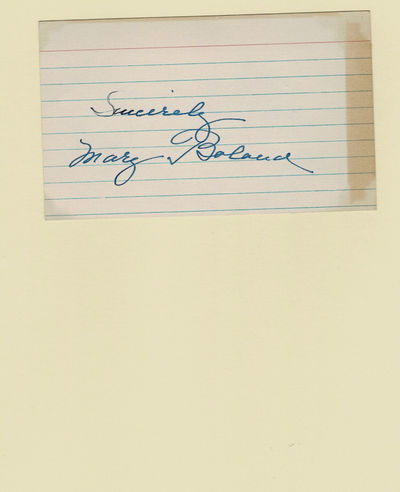 Sincerely
Mary Boland